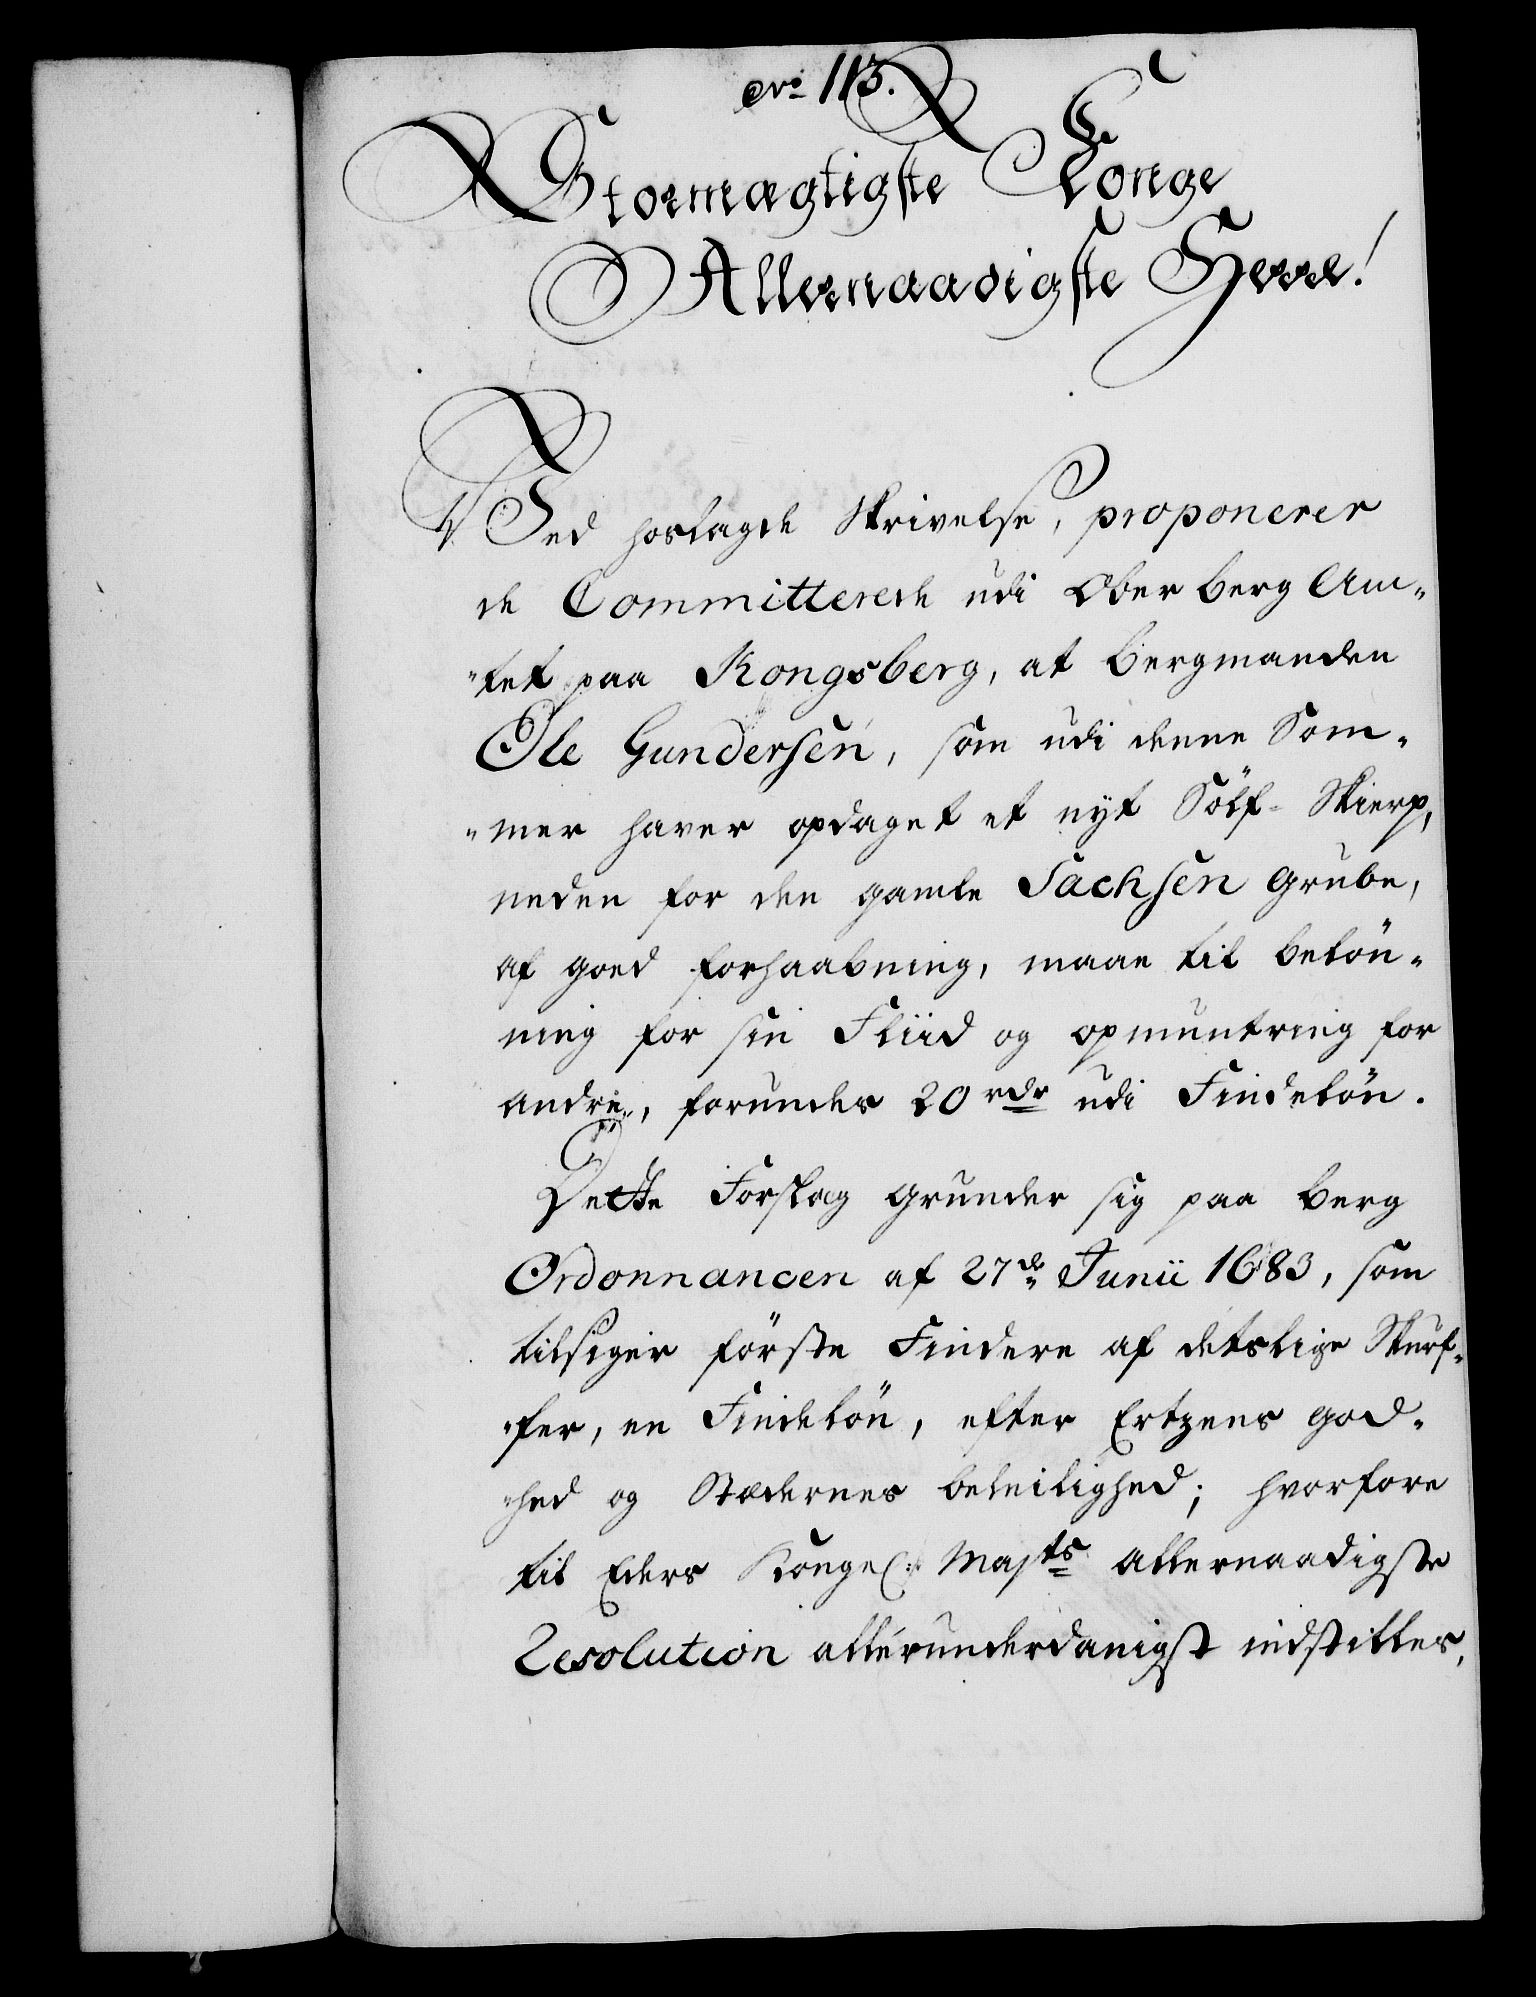 No 113.
Stormægtigste Konge
Allernaadigste Herre!
Ved hoslagde Skrivelse, proponerer
de Committerede udi Ober Berg Am-
"tet paa Kongsberg, at Bergmanden
Ole Gundersen, som udi denne Som-
"mer haver opdaget et nyt Sölf-Skierp,
neden for den gamle Sachsen Grube,
af goed forhaabning, maae til belön-
ning for sin Fliid og opmuntring for
andre, forundes 20 rdr udi Findelön.
Dette Forslag grunder sig paa Berg
Ordonnancen af 27de Junii 1683, som
tilsiger förste Findere af detslige Skurf-
"fer, en Findelön, efter Ertzens god-
"hed og Stædernes beleilighed; hvorfore
til Eders Kongel: Majts allernaadigste
Resolution allerunderdanigst indstilles,